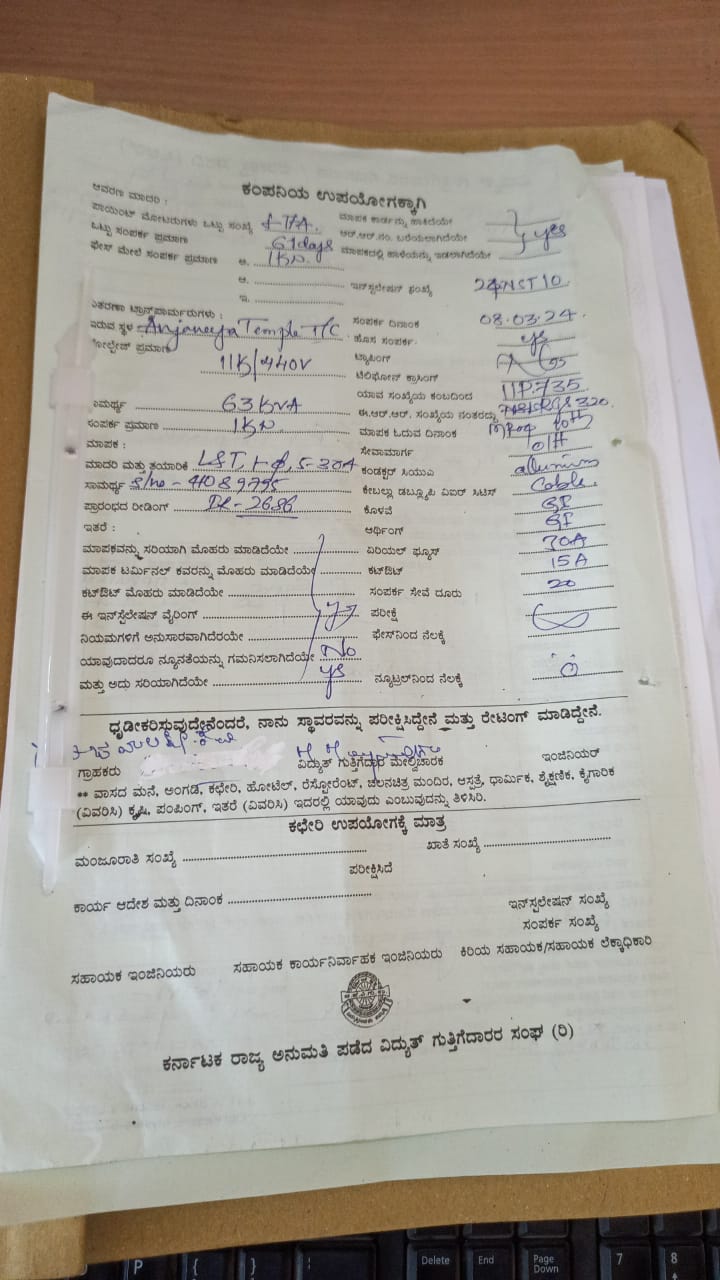 ಕಂಪನಿಯ ಉಪಯೋಗಕ್ಕಾಗಿ
ಆವರಣ ಮಾದರಿ :
ಪಾಯಿಂಟ್ ಮೋಟರುಗಳು ಒಟ್ಟು ಸಂಖ್ಯೆ ಮಾಪಕ ಕಾರ್ಡನ್ನು ಹಾಕಿದೆಯೇ
ಒಟ್ಟು ಸಂಪರ್ಕ ಪ್ರಮಾಣ 61days ಆರ್.ಆರ್.ನಂ. ಬರೆಯಲಾಗಿದೆಯೇ yes
ಫೇಸ್ ಮೇಲೆ ಸಂಪರ್ಕ ಪ್ರಮಾಣ ಅ. 1KW ಮಾಪಕದಲ್ಲಿ ಹಾಳೆಯನ್ನು ಇಡಲಾಗಿದೆಯೇ
ಆ. ಇನ್‌ಸ್ಟಲೇಷನ್ ಸಂಖ್ಯೆ
ಇ.
ವಿತರಣಾ ಟ್ರಾನ್ಸ್‌ಫಾರ್ಮರುಗಳು : ಸಂಪರ್ಕ ದಿನಾಂಕ 08.03.24.
ಇರುವ ಸ್ಥಳ Anjaneya Temple T/C ಹೊಸ ಸಂಪರ್ಕ yes
ವೋಲ್ಟೇಜ್ ಪ್ರಮಾಣ 11K/440V ಟ್ಯಾಪಿಂಗ್
ಟೆಲಿಫೋನ್ ಕ್ರಾಸಿಂಗ್
ಸಾಮರ್ಥ್ಯ 63KVA ಯಾವ ಸಂಖ್ಯೆಯ ಕಂಬದಿಂದ 11P.735
ಸಂಪರ್ಕ ಪ್ರಮಾಣ 1KW ಈ.ಆರ್.ಆರ್. ಸಂಖ್ಯೆಯ ನಂತರದ್ದು
ಮಾಪಕ : ಮಾಪಕ ಓದುವ ದಿನಾಂಕ
ಮಾದರಿ ಮತ್ತು ತಯಾರಿಕೆ L&T, 1-Φ, 5-30A ಸೇವಾಮಾರ್ಗ O/H
ಸಾಮರ್ಥ್ಯ S/no - 41089795 ಕಂಡಕ್ಟರ್ ಸಿಯುಎ alluminium
ಪ್ರಾರಂಭದ ರೀಡಿಂಗ್ ಕೇಬಲ್ಲು ಡಬ್ಲ್ಯೂಪಿ ವಿಐರ್ ಸಿಟಿಸ್ Cable.
ಕೊಳವೆ GI
ಇತರೆ : ಅರ್ಥಿಂಗ್ GI
ಮಾಪಕವನ್ನು ಸರಿಯಾಗಿ ಮೊಹರು ಮಾಡಿದೆಯೇ ಏರಿಯಲ್ ಫ್ಯೂಸ್ 30A
ಮಾಪಕ ಟರ್ಮಿನಲ್ ಕವರನ್ನು ಮೊಹರು ಮಾಡಿದೆಯೇ ಕಟ್‌ಔಟ್ 15A
ಕಟ್‌ಔಟ್ ಮೊಹರು ಮಾಡಿದೆಯೇ ಸಂಪರ್ಕ ಸೇವೆ ದೂರು 20
ಈ ಇನ್‌ಸ್ಟೆಲೇಷನ್ ವೈರಿಂಗ್ ಪರೀಕ್ಷೆ
ನಿಯಮಗಳಿಗೆ ಅನುಸಾರವಾಗಿದೆರಯೇ ಫೇಸ್‌ನಿಂದ ನೆಲಕ್ಕೆ
ಯಾವುದಾದರೂ ನ್ಯೂನತೆಯನ್ನು ಗಮನಿಸಲಾಗಿದೆಯೇ No
ಮತ್ತು ಅದು ಸರಿಯಾಗಿದೆಯೇ yes ನ್ಯೂಟ್ರಲ್‌ನಿಂದ ನೆಲಕ್ಕೆ
ಧೃಡೀಕರಿಸ್ತುವುದ್ದೇನೆಂದರೆ, ನಾನು ಸ್ಥಾವರವನ್ನು ಪರೀಕ್ಷಿಸಿದ್ದೇನೆ ಮತ್ತು ರೇಟಿಂಗ್ ಮಾಡಿದ್ದೇನೆ.
ಗ್ರಾಹಕರು ವಿದ್ಯುತ್ ಗುತ್ತಿಗೆದಾರ ಮೇಲ್ವಿಚಾರಕ ಇಂಜಿನಿಯರ್
** ವಾಸದ ಮನೆ, ಅಂಗಡಿ, ಕಛೇರಿ, ಹೋಟೆಲ್, ರೆಸ್ಟೋರೆಂಟ್, ಚಲನಚಿತ್ರ ಮಂದಿರ, ಆಸ್ಪತ್ರೆ, ಧಾರ್ಮಿಕ, ಶೈಕ್ಷಣಿಕ, ಕೈಗಾರಿಕ
(ವಿವರಿಸಿ) ಕೃಷಿ, ಪಂಪಿಂಗ್, ಇತರೆ (ವಿವರಿಸಿ) ಇದರಲ್ಲಿ ಯಾವುದು ಎಂಬುವುದನ್ನು ತಿಳಿಸಿರಿ.
ಕಛೇರಿ ಉಪಯೋಗಕ್ಕೆ ಮಾತ್ರ
ಮಂಜೂರಾತಿ ಸಂಖ್ಯೆ ಖಾತೆ ಸಂಖ್ಯೆ
ಪರೀಕ್ಷಿಸಿದೆ
ಕಾರ್ಯ ಆದೇಶ ಮತ್ತು ದಿನಾಂಕ
ಇನ್‌ಸ್ಪಲೇಷನ್ ಸಂಖ್ಯೆ
ಸಂಪರ್ಕ ಸಂಖ್ಯೆ
ಸಹಾಯಕ ಇಂಜಿನಿಯರು ಸಹಾಯಕ ಕಾರ್ಯನಿರ್ವಾಹಕ ಇಂಜಿನಿಯರು ಕಿರಿಯ ಸಹಾಯಕ/ಸಹಾಯಕ ಲೆಕ್ಕಾಧಿಕಾರಿ
ಕರ್ನಾಟಕ ರಾಜ್ಯ ಅನುಮತಿ ಪಡೆದ ವಿದ್ಯುತ್ ಗುತ್ತಿಗೆದಾರರ ಸಂಘ (ರಿ)
P { } : Delete End Page Down 7 8